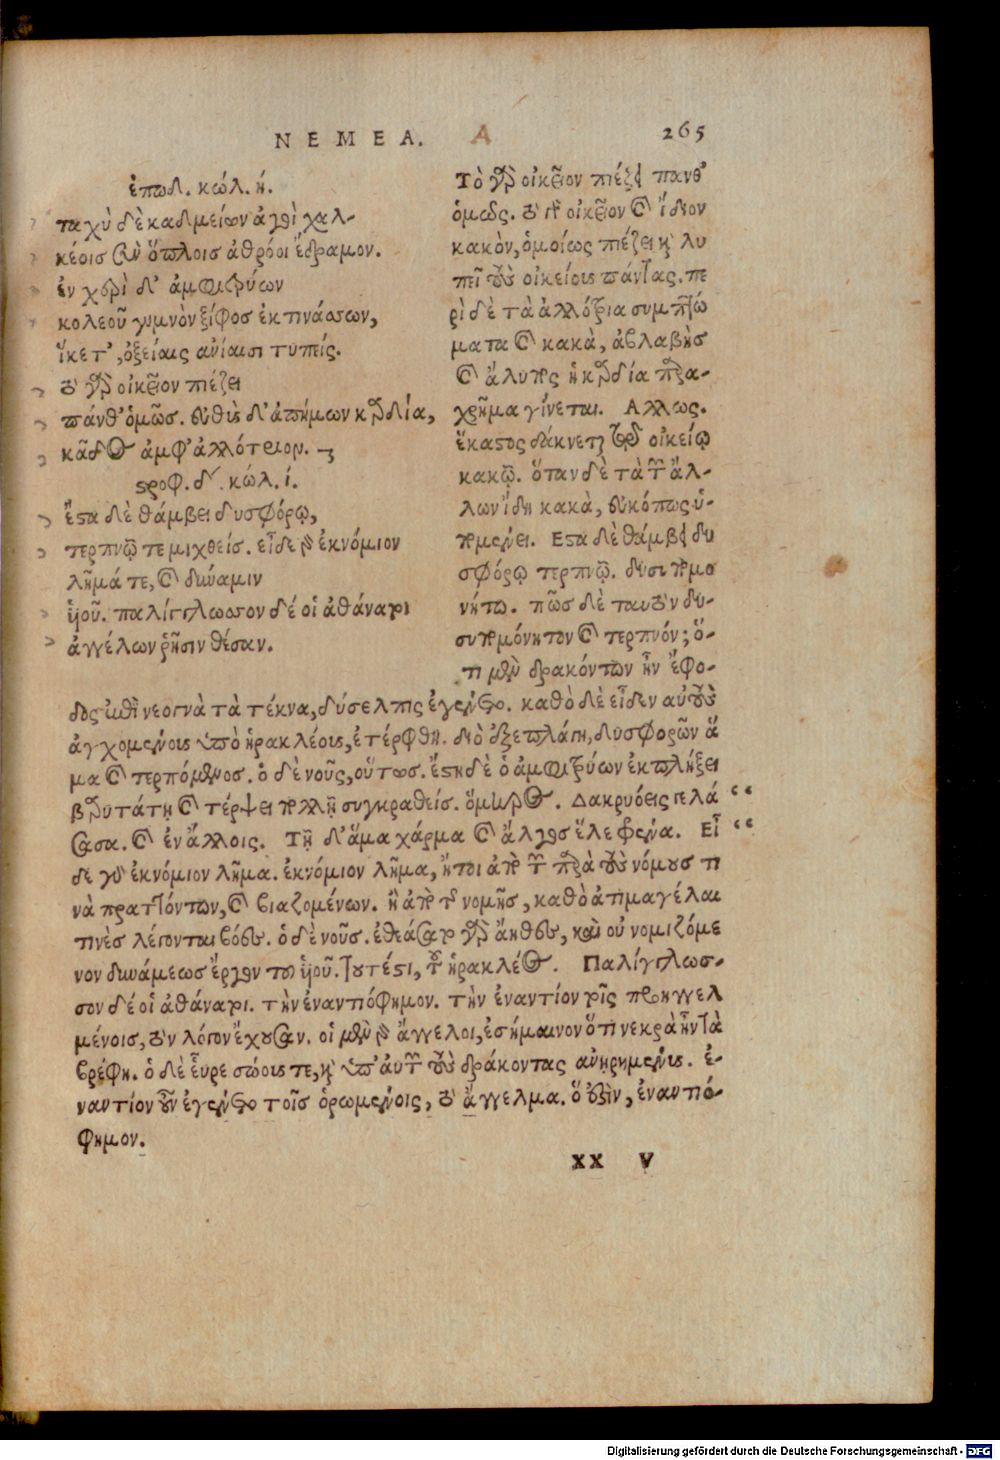 ΝΕΜΕΑ. Α 265
ἐπῳδ. κώλ. ή.
ταχὺ δὲ καδμείων ἀγοὶ χαλ-
κέοις σὺν ὅπλοις ἀθρόοι ἔδραμον.
ἐν χερὶ δ' ἀμφιτρύων
κολεοῦ γυμνὸν ξίφος ἐκτινάσσων,
ἵκετ', ὀξείαις ἀνίαισι τυπείς.
τὸ γὰρ οἰκεῖον πιέζει
πάνθ' ὁμῶς. εὐθὺς δ' ἀπήμων καρδία,
κᾶδος ἀμφ' ἀλλότριον.
στροφ. δ'. κώλ. ί.
ἔστα δὲ θάμβει δυσφόρῳ,
τερπνῷ τε μιχθείς. εἶδε γὰρ ἐκνόμιον
λῆμά τε, καὶ δύναμιν
ὑιοῦ. παλίγγλωσσον δέ οἱ ἀθάνατοι
ἀγγέλων ῥῆσιν θέσαν.
Τὸ γὰρ οἰκεῖον πιέζει πανθ'
ὁμῶς. τὸ μὲν οἰκεῖον καὶ ἴδιον
κακὸν, ὁμοίως πιέζει καὶ λυ
πεῖ τοὺς οἰκείους πάντας. πε
ρὶ δὲ τὰ ἀλλότρια συμπτώ
ματα καὶ κακὰ, ἀβλαβὴς
καὶ ἄλυπος ἡ καρδία παρα-
χρῆμα γίνεται. Αλλως.
ἕκαστος δάκνεται τῷ οἰκείῳ
κακῷ. ὅταν δὲ τὰ τῶν ἄλ-
λων ἴδῃ κακὰ, εὐκόπως ὑ-
πομένει. Εστα δὲ θάμβει δυ
σφόρῳ τερπνῷ. δυσυπομο
νήτῳ. πῶς δὲ ταυτὸν δυ-
συπομόνητον καὶ τερπνόν; ὅ-
τι μὲν δρακόντων ἦν ἔφο-
δος ἐπὶ νεογνὰ τὰ τέκνα, δύσελπις ἐγένετο. καθὸ δὲ εἶδεν αὐτοὺς
ἀγχομένους ὑπὸ ἡρακλέους, ἐτέρφθη. διὸ ἐξεπλάγη, δυσφορῶν ἅ
μα καὶ τερπόμενος. ὁ δὲ νοῦς, οὕτως. ἔστη δὲ ὁ ἀμφιτρύων ἐκπλήξει
βαρυτάτῃ καὶ τέρψει πολλῇ συγκραθείς. ὅμηρος. Δακρυόεις γελά
σασα. καὶ ἐν ἄλλοις. Τὴν δ' ἅμα χάρμα καὶ ἄλγος ἕλε φρένα. Εἶ
δε γὰρ ἐκνόμιον λῆμα. ἐκνόμιον λῆμα, ἤτοι ἀπὸ τῶν παρὰ τοὺς νόμους τι
νὰ πραττόντων, καὶ βιαζομένων. ἢ ἀπὸ τῆς νομῆς, καθὸ ἀτιμαγέλαι
τινὲς λέγονται βόες. ὁ δὲ νοῦς. ἐθεάσατο γὰρ ἄηθες, καὶ οὐ νομιζόμε
νον δυνάμεως ἔργον τοῦ ὑιοῦ. τουτέστι, τοῦ ἡρακλέος. Παλίγγλωσ-
σον δέ οἱ ἀθάνατοι. τὴν ἐναντιόφημον. τὴν ἐναντίον τοῖς προηγγελ
μένοις, τὸν λόγον ἔχουσαν. οἱ μὲν γὰρ ἄγγελοι, ἐσήμαινον ὅτι νεκρὰ ἦν τὰ
βρέφη. ὁ δὲ εὗρε σώους τε, καὶ ὑπ' αὐτῶν τοὺς δράκοντας ἀνῃρημένους. ἐ-
ναντίον οὖν ἐγένετο τοῖς ὁρωμένοις, τὸ ἄγγελμα. ὅ ἐστιν, ἐναντιό-
φημον.
XX V
Digitalisierung gefördert durch die Deutsche Forschungsgemeinschaft - DFG